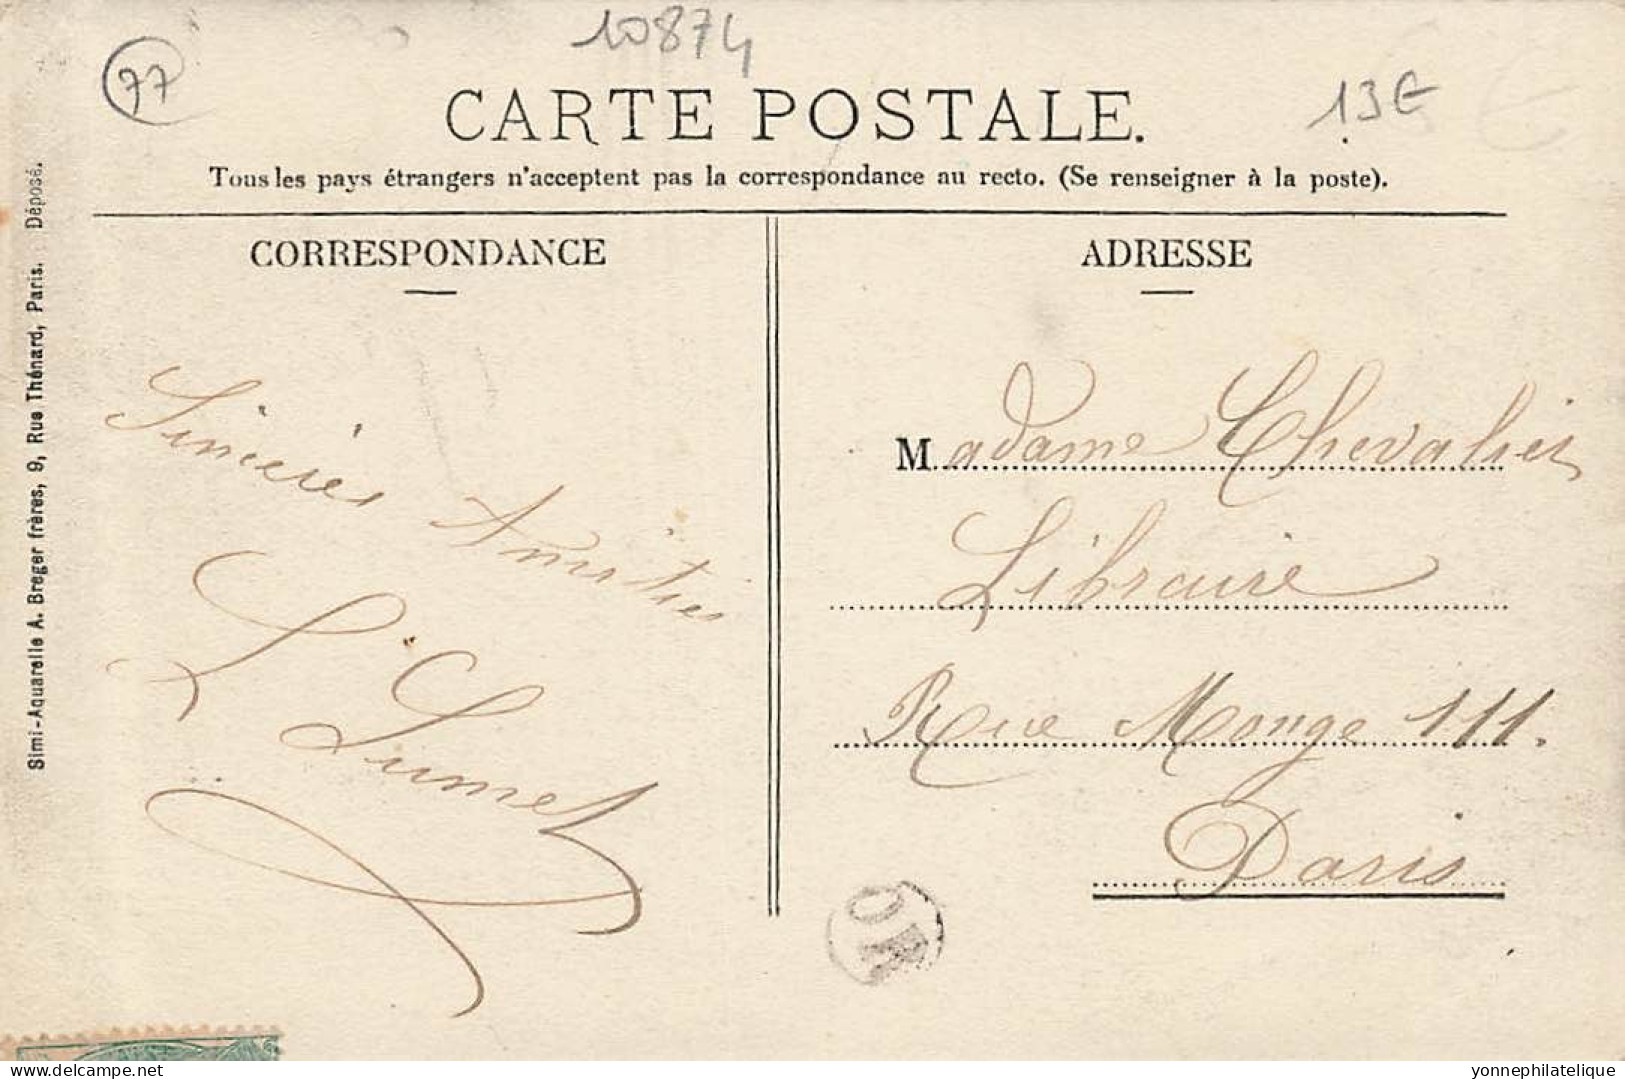 10874
77
13€
CARTE POSTALE.
Tous les pays étrangers n'acceptent pas la correspondance au recto. (Se renseigner à la poste).
CORRESPONDANCE
ADRESSE
Simi-Aquarelle A. Breger frères, 9, Rue Thénard, Paris. Déposé.
Sincères Amitiés
L. Lumet
Madame Chevalier
Libraire
Rue Monge 111.
Paris
OR
www.delcampe.net
yonnephilatelique